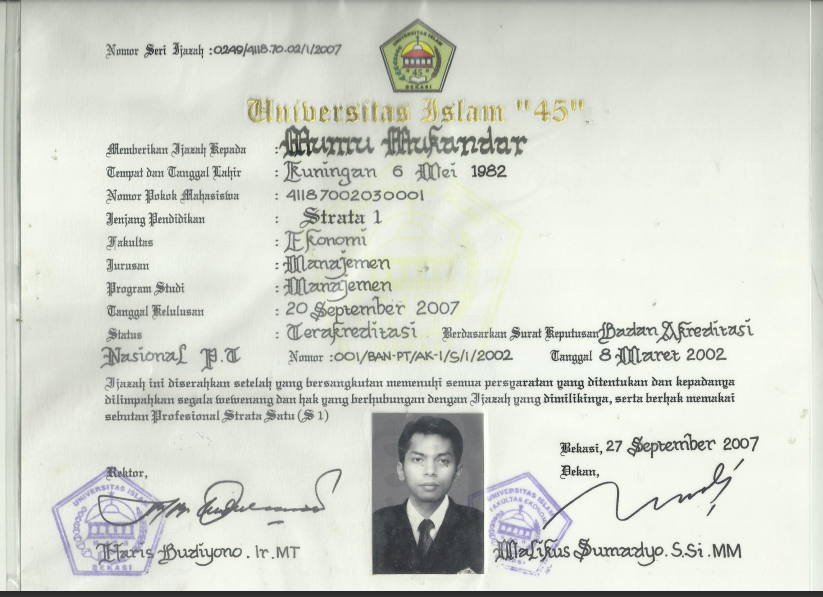 Nomor Seri Ijazah : 0249/4118.70.02/1/2007
UNIVERSITAS ISLAM
45
BEKASI
Universitas Islam "45"
Memberikan Ijazah Kepada : Mumu Mukandar
Tempat dan Tanggal Lahir : Kuningan 6 Mei 1982
Nomor Pokok Mahasiswa : 41187002030001
Jenjang Pendidikan : Strata 1
Fakultas : Ekonomi
Jurusan : Manajemen
Program Studi : Manajemen
Tanggal Kelulusan : 20 September 2007
Status : Terakreditasi Berdasarkan Surat Keputusan Badan Akreditasi
Nasional P.T Nomor : 001/BAN-PT/AK-1/S/1/2002 Tanggal 8 Maret 2002
Ijazah ini diserahkan setelah yang bersangkutan memenuhi semua persyaratan yang ditentukan dan kepadanya
dilimpahkan segala wewenang dan hak yang berhubungan dengan Ijazah yang dimilikinya, serta berhak memakai
sebutan Profesional Strata Satu (S 1)
Bekasi, 27 September 2007
Rektor,
Dekan,
UNIVERSITAS ISLAM
BEKASI
UNIVERSITAS ISLAM
FAKULTAS EKONOMI
Haris Budiyono . Ir.MT
Malikus Sumadyo. S.Si .MM